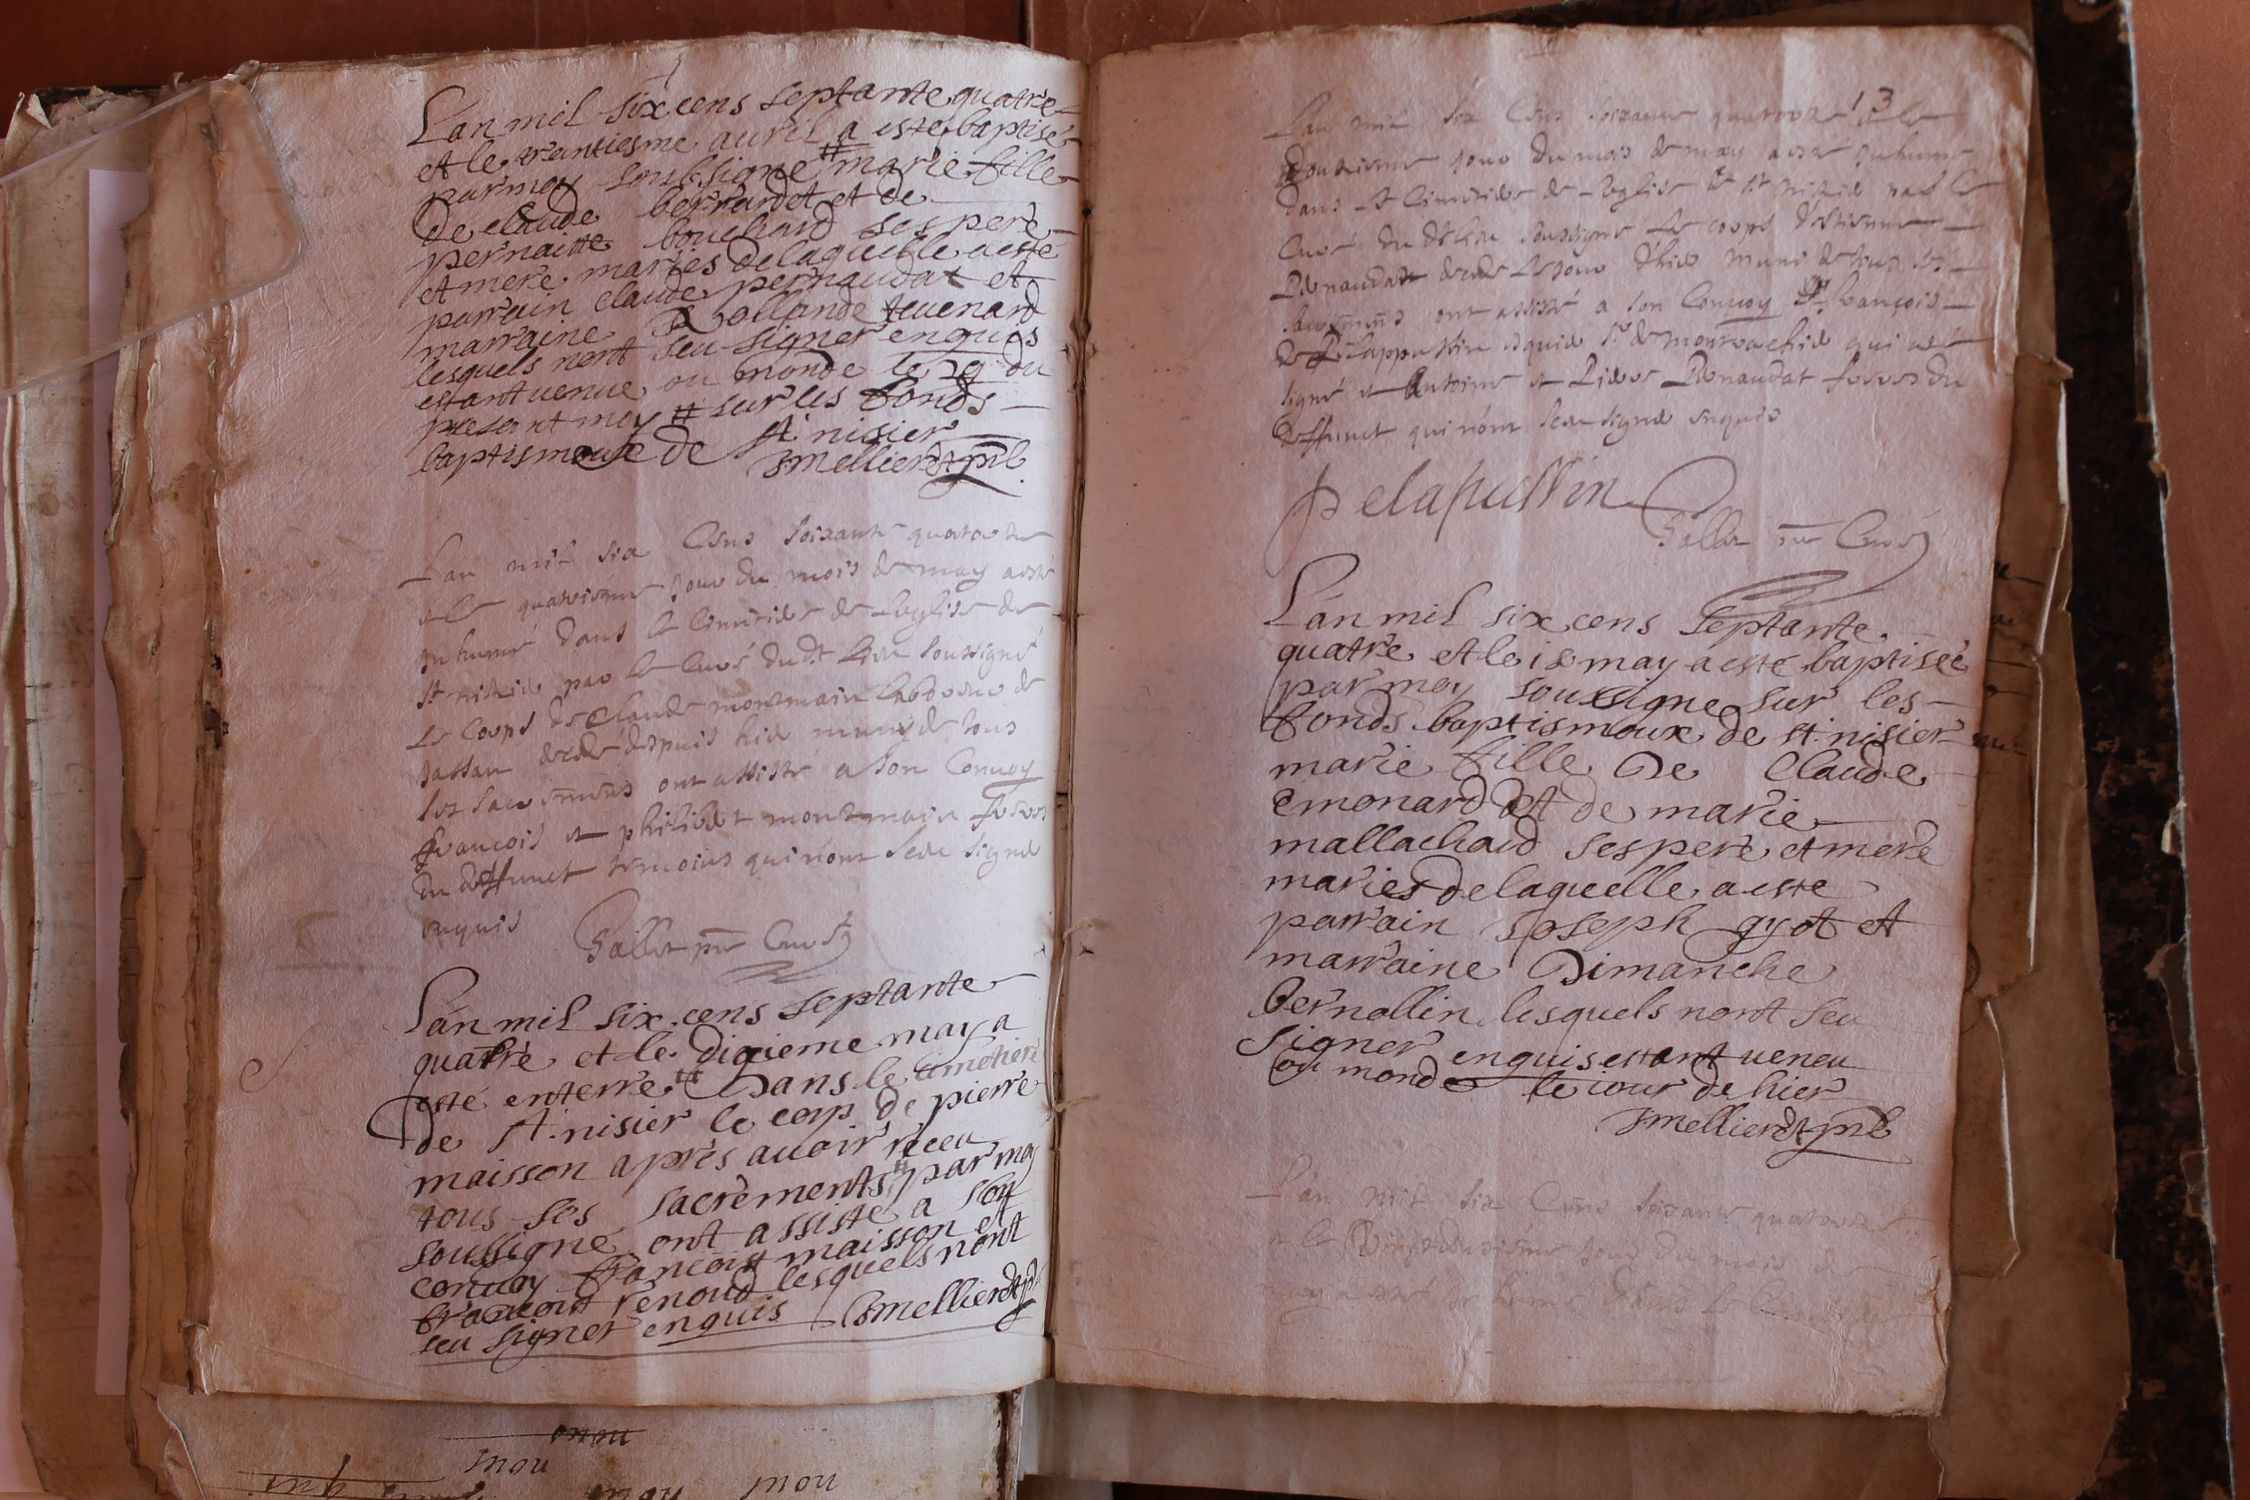 Lan mil six cens septante quatre
et le trantiesme auril a esté baptisé
par moy soubsigne # marie fille
de claude bernardet et de
pernaitte bouchard ses pere
et mere mariés de laquelle a esté
parrain claude pernaudat et
marraine Rollande teuenard
lesquels nont sceu signer enquis
estant venue ou monde le 29 du
present moy # sur les fonds
baptismeux de st. nisier
Lan mil six Cens soixante quatorze
et le quatriesme jour du mois de may a esté
inhumé dans le Cimitiere de Leglise de
st nisier par le Curé dudt Lieu soussigné
Le Corps de Claude montmain Laboureur de
decedé despuis hier muny de tous
ses sacremens ont assisté a son Conuoy
françois et philibert montmain freres
du deffunct temoins qui n'ont sceu signer
enquis
Gallet ptre Curé
Lan mil six cens septante
quatre et le dixieme may a
esté enterre # Dans le cimetiere
de st. nisier le corp de pierre
maisson apres auoir receu
tous ses sacrements, # par moy
soussigne ont assiste a son
conuoy françois maisson et
renoud lesquels nont
sceu signer enquis
13
Lan mil six Cens soixante quatorze et le
jour du mois de may a esté inhumé
dans le Cimitiere de Leglise de st nisier par le
Curé du dt Lieu soussigné Le corps d'estienne
Renaudat decedé Le jour d'hier muni de tous ses
sacremens ont assisté a son Conuoy françois
de qui a
signé et Antoine et Renaudat freres du
deffunct qui n'ont sceu signer enquis
Delapussin
Gallet ptre Curé
Lan mil six cens septante
quatre et le may a esté baptisée
par moy soussigne sur les
fonds baptismoux de st. nisier
marie fille De Claude
emonard et de marie
mallachard ses pere et mere
mariés de laquelle a esté
parrain Joseph gyot et
marraine Dimanche
bernollin lesquels nont sceu
signer enquis estant veneu
ou monde le iour de hier
Lan mil six Cens soixante quatorze
et le jour du mois de
may a esté
mou
mou mou